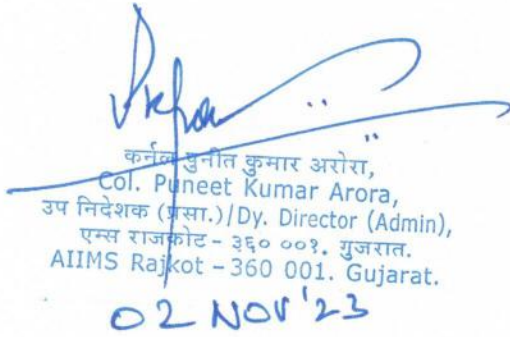 कर्नल पुनीत कुमार अरोरा,
Col. Puneet Kumar Arora,
उप निदेशक (प्रसा.)/Dy. Director (Admin),
एम्स राजकोट - ३६० ००१. गुजरात.
AIIMS Rajkot - 360 001. Gujarat.
02 NOV '23